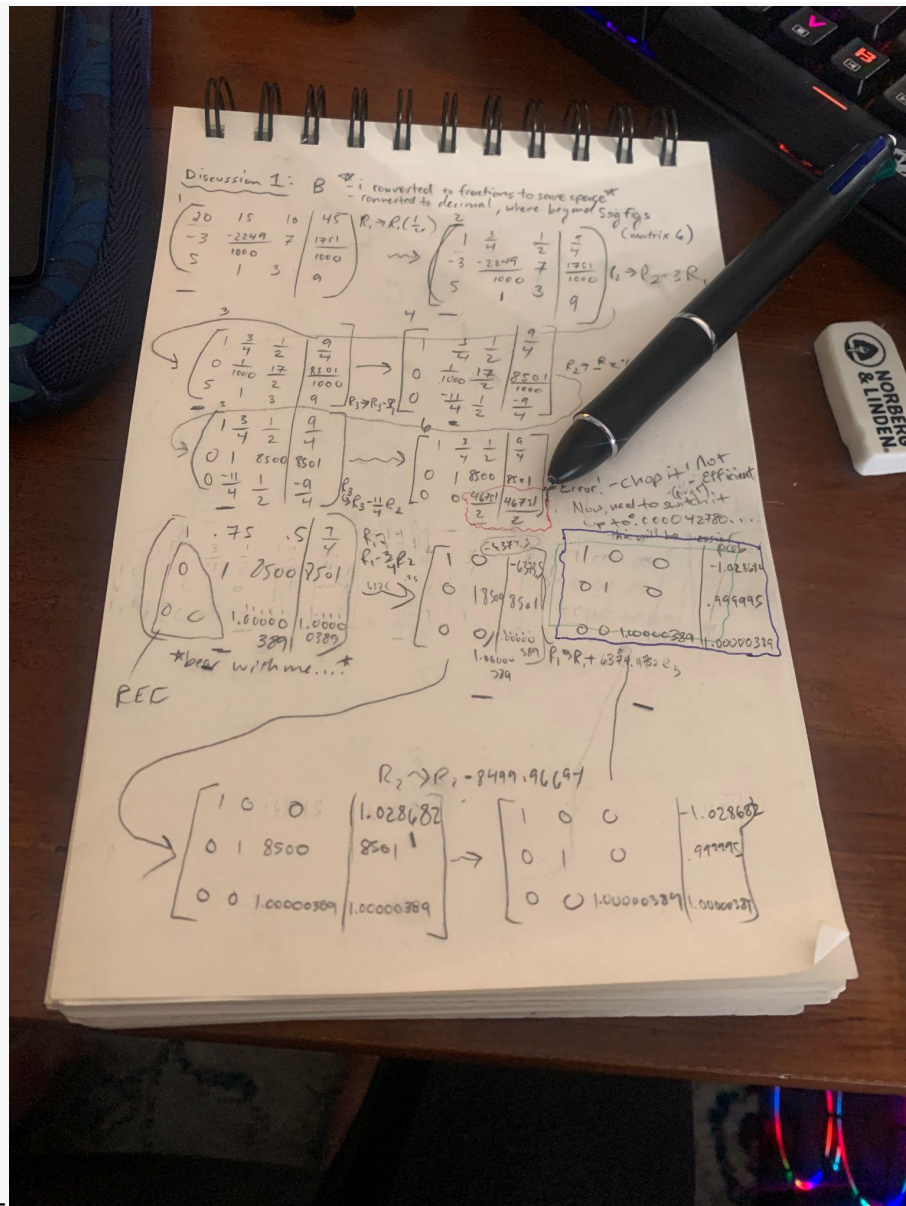 Discussion 1: B
- i converted to fractions to save space*
- converted to decimal, where beyond 5 sig figs
(matrix 6)
1
20 15 10 | 45
-3 -2249/1000 7 | 1751/1000
5 1 3 | 9
R₁→R₁(1/20)
2
1 3/4 1/2 | 9/4
-3 -2249/1000 7 | 1751/1000
5 1 3 | 9
3
1 3/4 1/2 | 9/4
0 1/1000 17/2 | 8501/1000
5 1 3 | 9
4
1 3/4 1/2 | 9/4
0 1/1000 17/2 | 8501/1000
0 -11/4 1/2 | -9/4
5
1 3/4 1/2 | 9/4
0 1 8500 | 8501
0 -11/4 1/2 | -9/4
R₃→R₃-11/4 R₂
6
1 3/4 1/2 | 9/4
0 1 8500 | 8501
0 0 46751/2 | 46751/2
Error! - chop it! Not
Efficient
(pivot)
Now, need to switch it
up to .000042780...
this will be easier
1 .75 .5
0 1 8500 | 8501
0 0 1.00000389 | 1.00000389
*bear with me....*
R₁-3/4R₂
-6374.3
1 0 | -6373.5
0 1 8500 | 8501
0 0 1.00000389 | 1.00000389
R₁→R₁+6374.4752R₃
1 0 0 | -1.028682
0 1 0 | .999995
0 0 1.00000389 | 1.00000389
R₂→R₂-8499.96694
1 0 0 | 1.028682
0 1 8500 | 8501
0 0 1.00000389 | 1.00000389
1 0 0 | -1.028682
0 1 0 | .999995
0 0 1.00000389 | 1.00000389
NORBERG
& LINDEN.